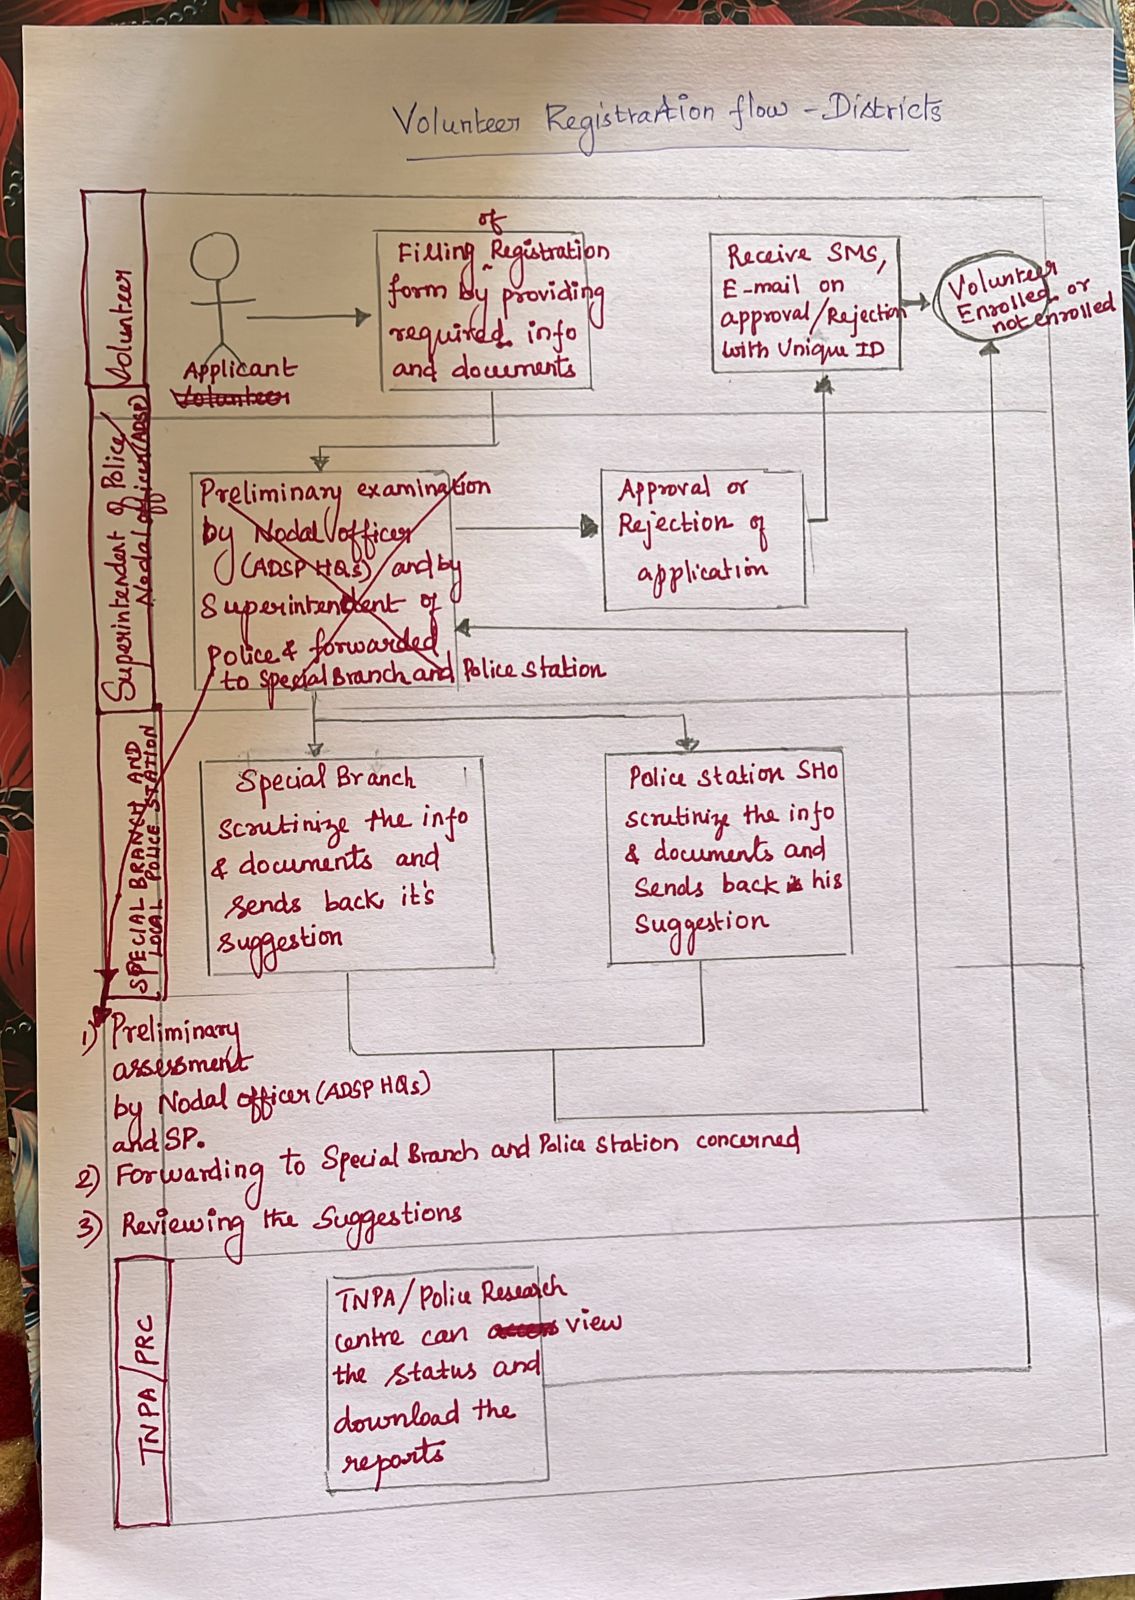 Volunteer Registration flow - Districts
Volunteer
Applicant
Volunteer
of
Filling Registration
form by providing
required info
and documents
Receive SMS,
E-mail on
approval/Rejection
with Unique ID
Volunteer
Enrolled or
not enrolled
Superintendent of Police/
Nodal officer (ADSP)
Preliminary examination
by Nodal officer
(ADSP HQs) and by
Superintendent of
Police & forwarded
to Special Branch and Police Station
Approval or
Rejection of
application
SPECIAL BRANCH AND
LOCAL POLICE STATION
Special Branch
scrutinize the info
& documents and
sends back it's
suggestion
Police Station SHO
scrutinize the info
& documents and
sends back his
suggestion
1) Preliminary
assessment
by Nodal officer (ADSP HQs)
and SP.
2) Forwarding to Special Branch and Police Station concerned
3) Reviewing the Suggestions
TNPA/PRC
TNPA/Police Research
centre can access view
the status and
download the
reports